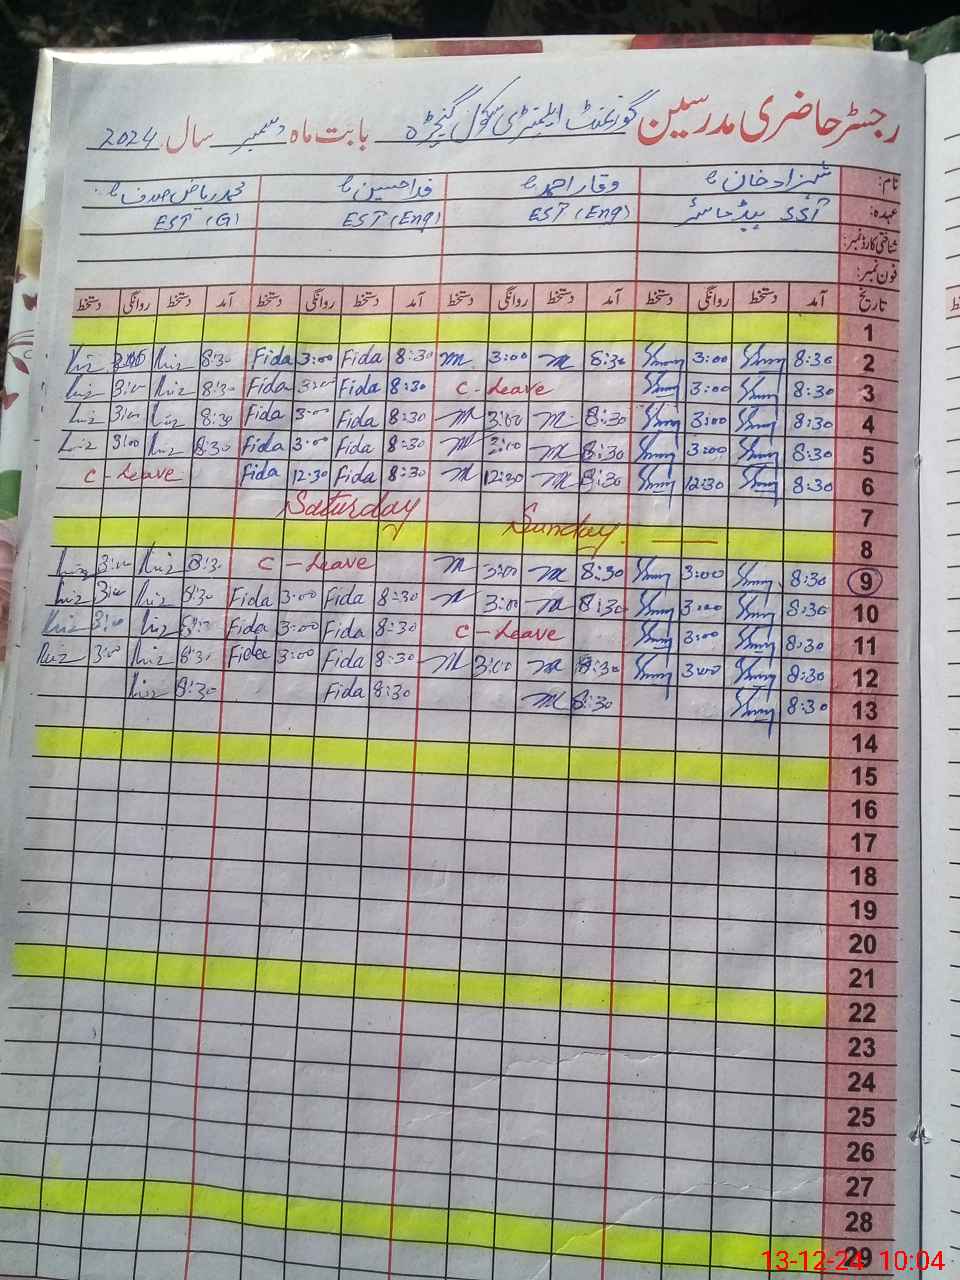 رجسٹر حاضری مدرسین گورنمنٹ ایلیمنٹری سکول بابت ماہ دسمبر سال 2024
نام: شہزاد خان وقار احمد فدا حسین محمد ریاض
عہدہ: SST ہیڈ ماسٹر EST (Eng) EST (Eng) EST (G)
شناختی کارڈ نمبر:
فون نمبر:
تاریخ آمد دستخط روانگی دستخط آمد دستخط روانگی دستخط آمد دستخط روانگی دستخط آمد دستخط روانگی دستخط
1
2 8:30 3:00 8:30 m 3:00 m 8:30 Fida 3:00 Fida 8:30 Riz Riz
3 8:30 3:00 C-Leave 8:30 Fida 3:00 Fida 8:30 Riz 3:00 Riz
4 8:30 3:00 8:30 m 3:00 m 8:30 Fida 3:00 Fida 8:30 Riz 3:00 Riz
5 8:30 3:00 8:30 m 3:00 m 8:30 Fida 3:00 Fida 8:30 Riz 3:00 Riz
6 8:30 12:30 8:30 m 12:30 m 8:30 Fida 12:30 Fida C-Leave
7 Saturday
8 Sunday
9 8:30 3:00 8:30 m 3:00 m C-Leave 8:30 Riz 3:00 Riz
10 8:30 3:00 8:30 m 3:00 m 8:30 Fida 3:00 Fida 8:30 Riz 3:00 Riz
11 8:30 3:00 C-Leave 8:30 Fida 3:00 Fida 8:30 Riz 3:00 Riz
12 8:30 3:00 8:30 m 3:00 m 8:30 Fida 3:00 Fida 8:30 Riz 3:00 Riz
13 8:30 8:30 m 8:30 Fida 8:30 Riz
14
15
16
17
18
19
20
21
22
23
24
25
26
27
28
29
13-12-24 10:04